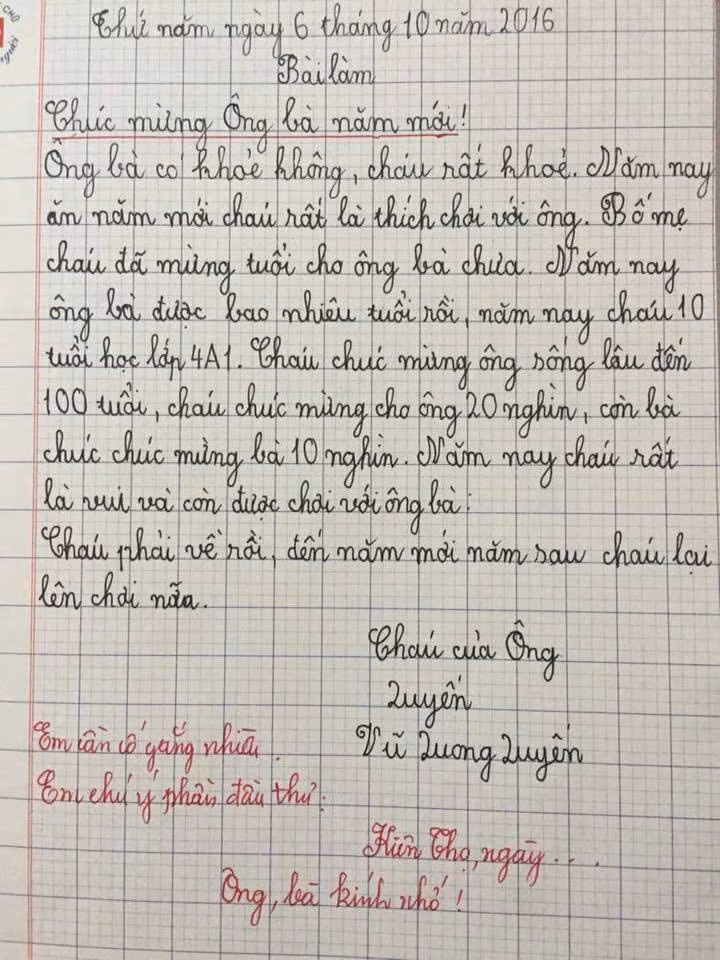 Thứ năm ngày 6 tháng 10 năm 2016
Bài làm
Chúc mừng Ông bà năm mới!
Ông bà có khoẻ không, cháu rất khoẻ. Năm nay
ăn năm mới cháu rất là thích chơi với ông. Bố mẹ
cháu đã mừng tuổi cho ông bà chưa. Năm nay
ông bà được bao nhiêu tuổi rồi, năm nay cháu 10
tuổi học lớp 4A1. Cháu chúc mừng ông sống lâu đến
100 tuổi, cháu chúc mừng cho ông 20 nghìn, còn bà
chúc chúc mừng bà 10 nghìn. Năm nay cháu rất
là vui và còn được chơi với ông bà.
Cháu phải về rồi, đến năm mới năm sau cháu lại
lên chơi nữa.
Cháu của Ông
Quyến
Vũ Quang Quyến
Em cần cố gắng nhiều.
Em chú ý phần đầu thư:
Thọ, ngày...
Ông, bà kính nhớ!